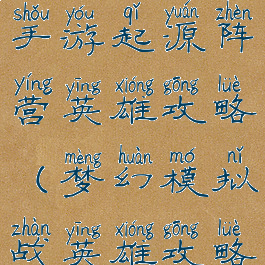 shǒu yóu qǐ yuán zhèn
手游起源阵
yíng yīng xióng gōng lüè
营英雄攻略
mèng huàn mó nǐ
（梦幻模拟
zhàn yīng xióng gōng lüè
战英雄攻略